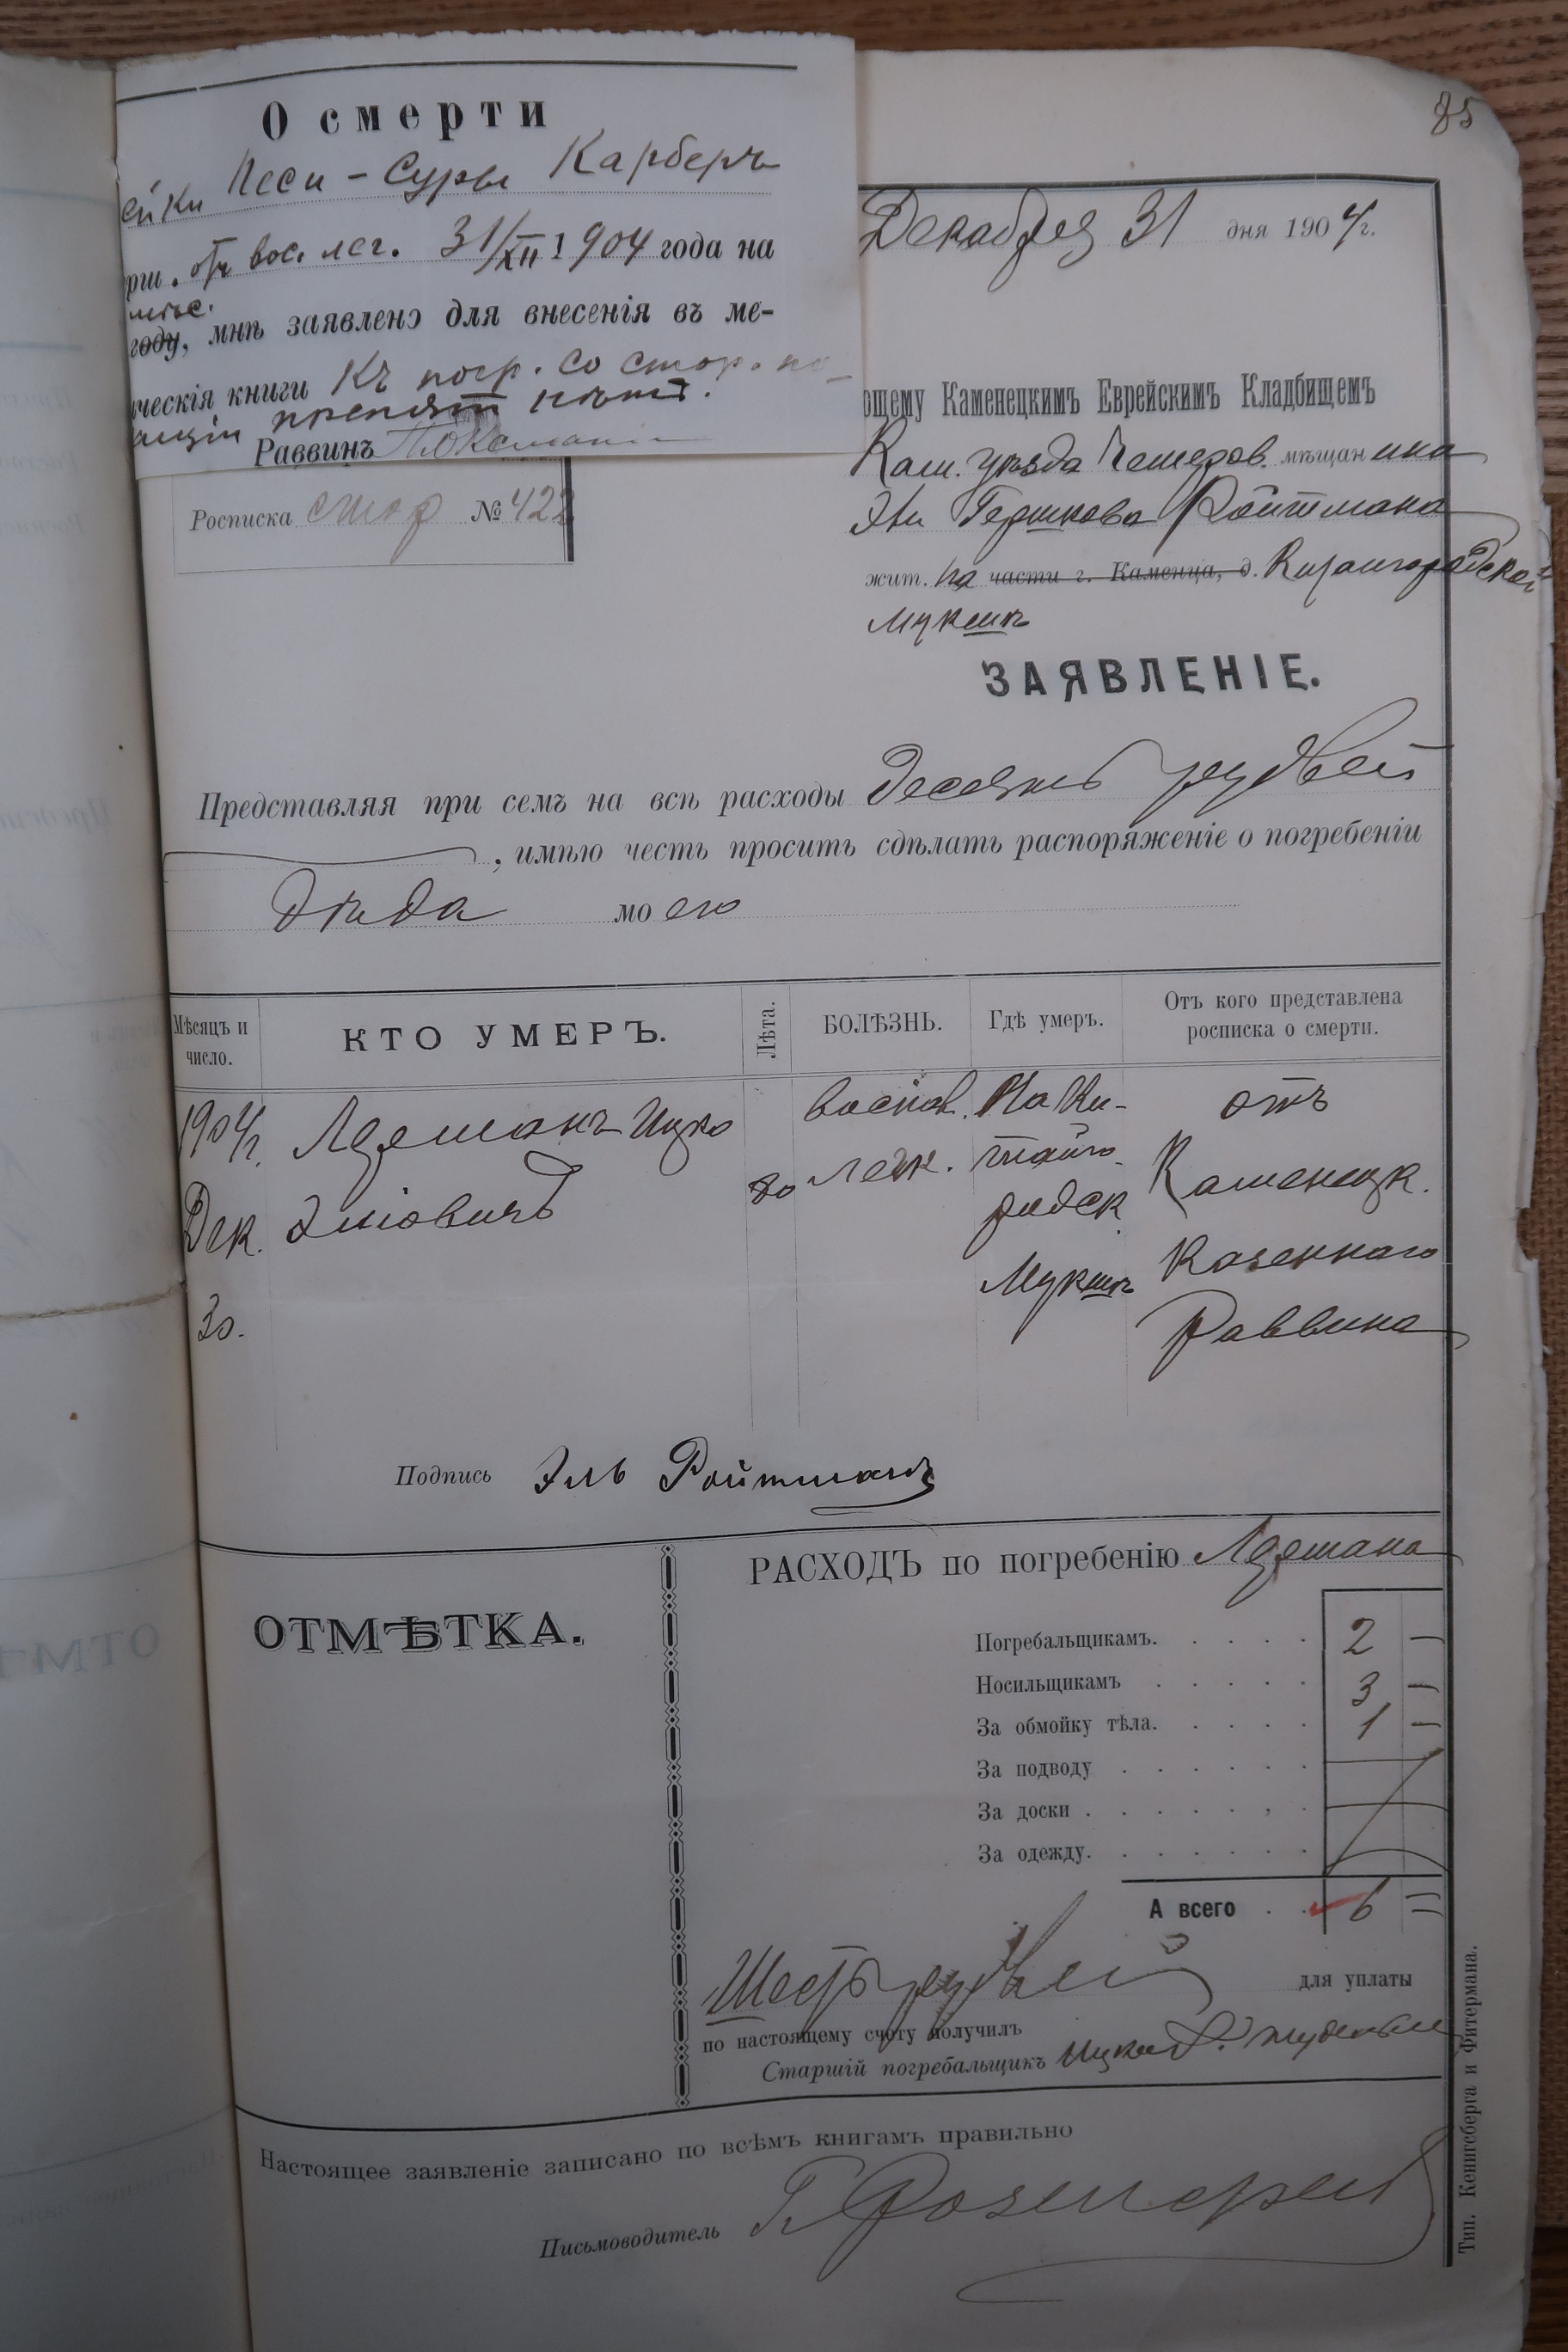 85
О смерти
ейки Песи-Суры Карберъ
рш. отъ вос. лег. 31/XII 1904 года на
мѣс.
году, мнѣ заявлено для внесенія въ ме-
ческія книги Къ погр. со стор. по-
лиціи препят нѣтъ.
Раввинъ
Росписка стор №422
Декабря 31 дня 1904 г.
ющему Каменецкимъ Еврейскимъ Кладбищемъ
Кам. уѣзда мѣщанина
Эли Гершкова Ройтмана
жит. на части г. Каменца, д. Китайгородской
Мукшѣ
ЗАЯВЛЕНІЕ.
Представляя при семъ на всѣ расходы десять рублей
, имѣю честь просить сдѣлать распоряженіе о погребеніи
дѣда моего
Мѣсяцъ и число.
КТО УМЕРЪ.
Лѣта.
БОЛѢЗНЬ.
Гдѣ умеръ.
Отъ кого представлена росписка о смерти.
1904 г. Дек. 30.
Ицко
80
воспал. легк.
На Китайгородск. Мукшѣ
отъ Каменецк. Казеннаго Раввина
Подпись Эль Ройтманъ
ОТМѢТКА.
РАСХОДЪ по погребенію
Погребальщикамъ. 2 —
Носильщикамъ 3 —
За обмойку тѣла. 1 —
За подводу
За доски
За одежду.
А всего 6 =
Шесть рублей для уплаты
по настоящему счету получилъ
Старшій погребальщикъ Ицко
Настоящее заявленіе записано по всѣмъ книгамъ правильно
Письмоводитель
Тип. Кенигсберга и Фитермана.